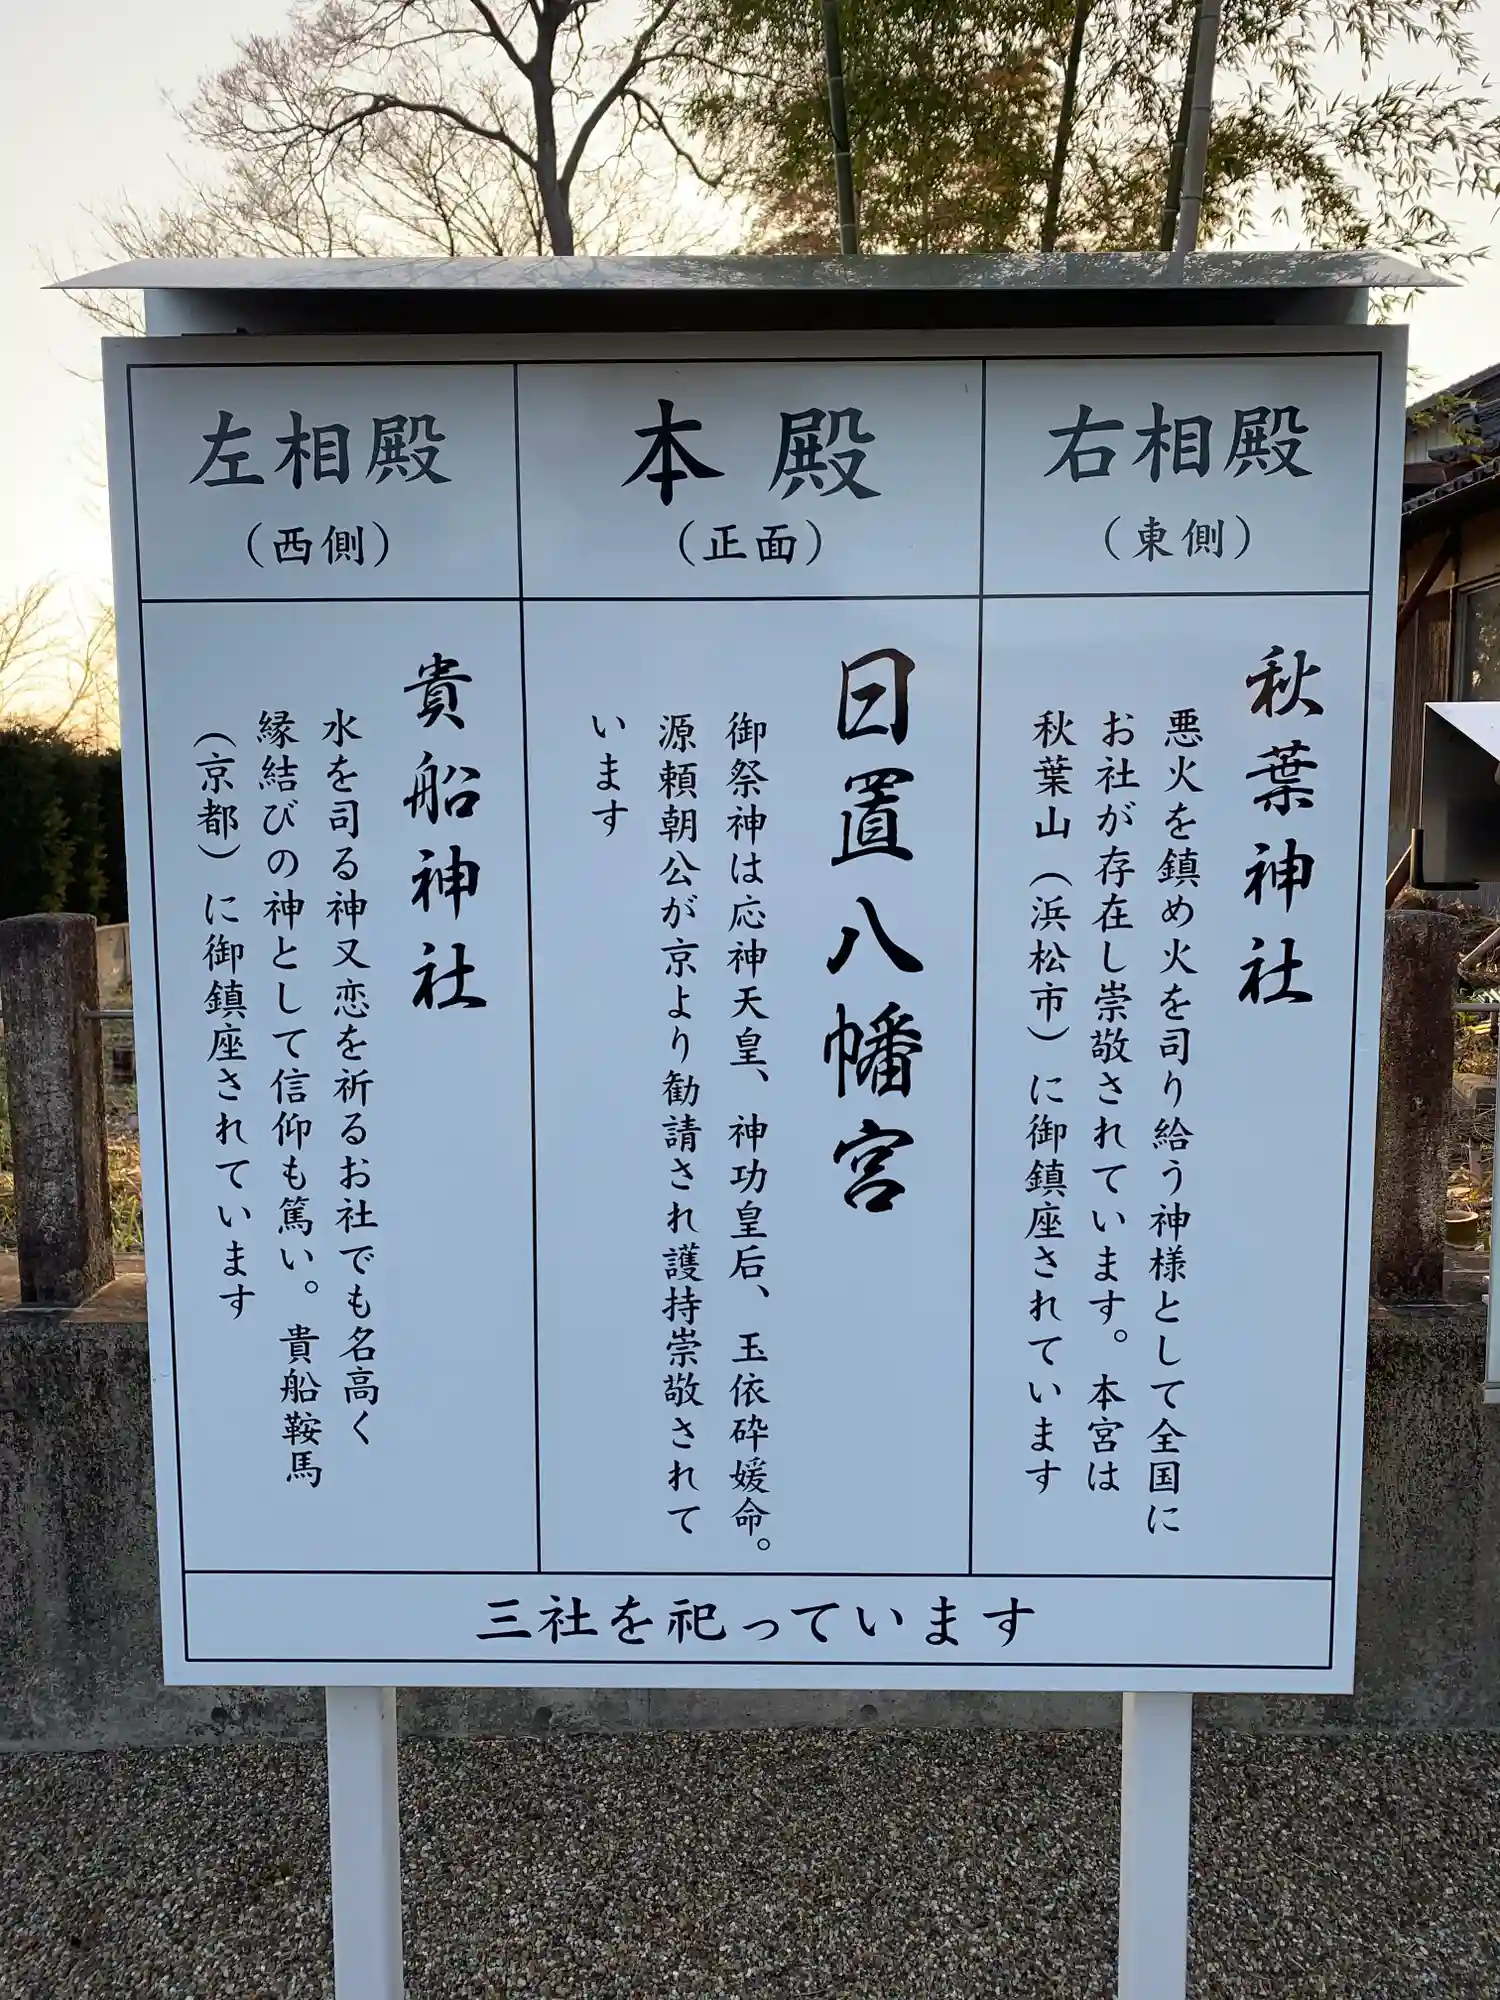 右相殿
（東側）
秋葉神社
悪火を鎮め火を司り給う神様として全国に
お社が存在し崇敬されています。本宮は
秋葉山（浜松市）に御鎮座されています
本殿
（正面）
日置八幡宮
御祭神は応神天皇、神功皇后、玉依砕媛命。
源頼朝公が京より勧請され護持崇敬されて
います
左相殿
（西側）
貴船神社
水を司る神又恋を祈るお社でも名高く
縁結びの神として信仰も篤い。貴船鞍馬
（京都）に御鎮座されています
三社を祀っています